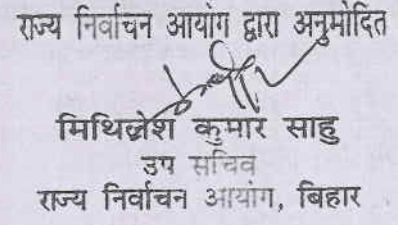 राज्य निर्वाचन आयोग द्वारा अनुमोदित
मिथिलेश कुमार साहु
उप सचिव
राज्य निर्वाचन आयोग, बिहार